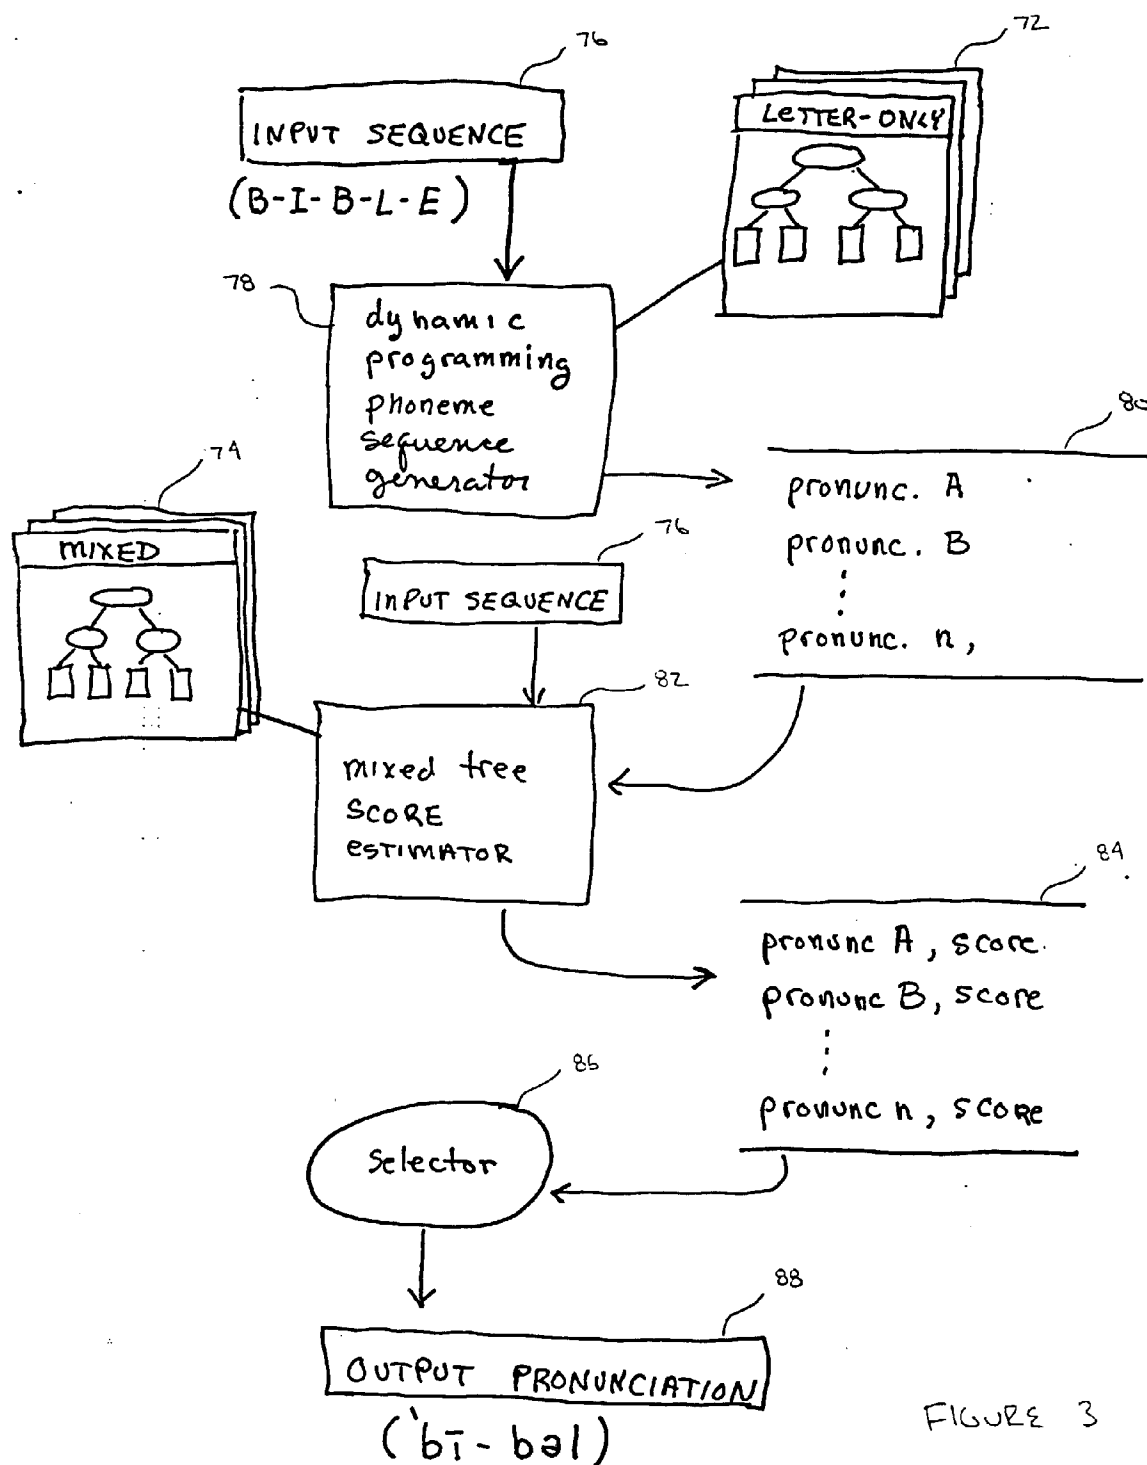 76
72
INPUT SEQUENCE
LETTER-ONLY
(B-I-B-L-E)
78
dynamic
programming
phoneme
sequence
generator
80
pronunc. A
pronunc. B
pronunc. n,
74
MIXED
76
INPUT SEQUENCE
82
mixed tree
SCORE
ESTIMATOR
84
pronunc A, score.
pronunc B, score
pronunc n, score
86
Selector
88
OUTPUT PRONUNCIATION
(ˈbī-bəl)
FIGURE 3